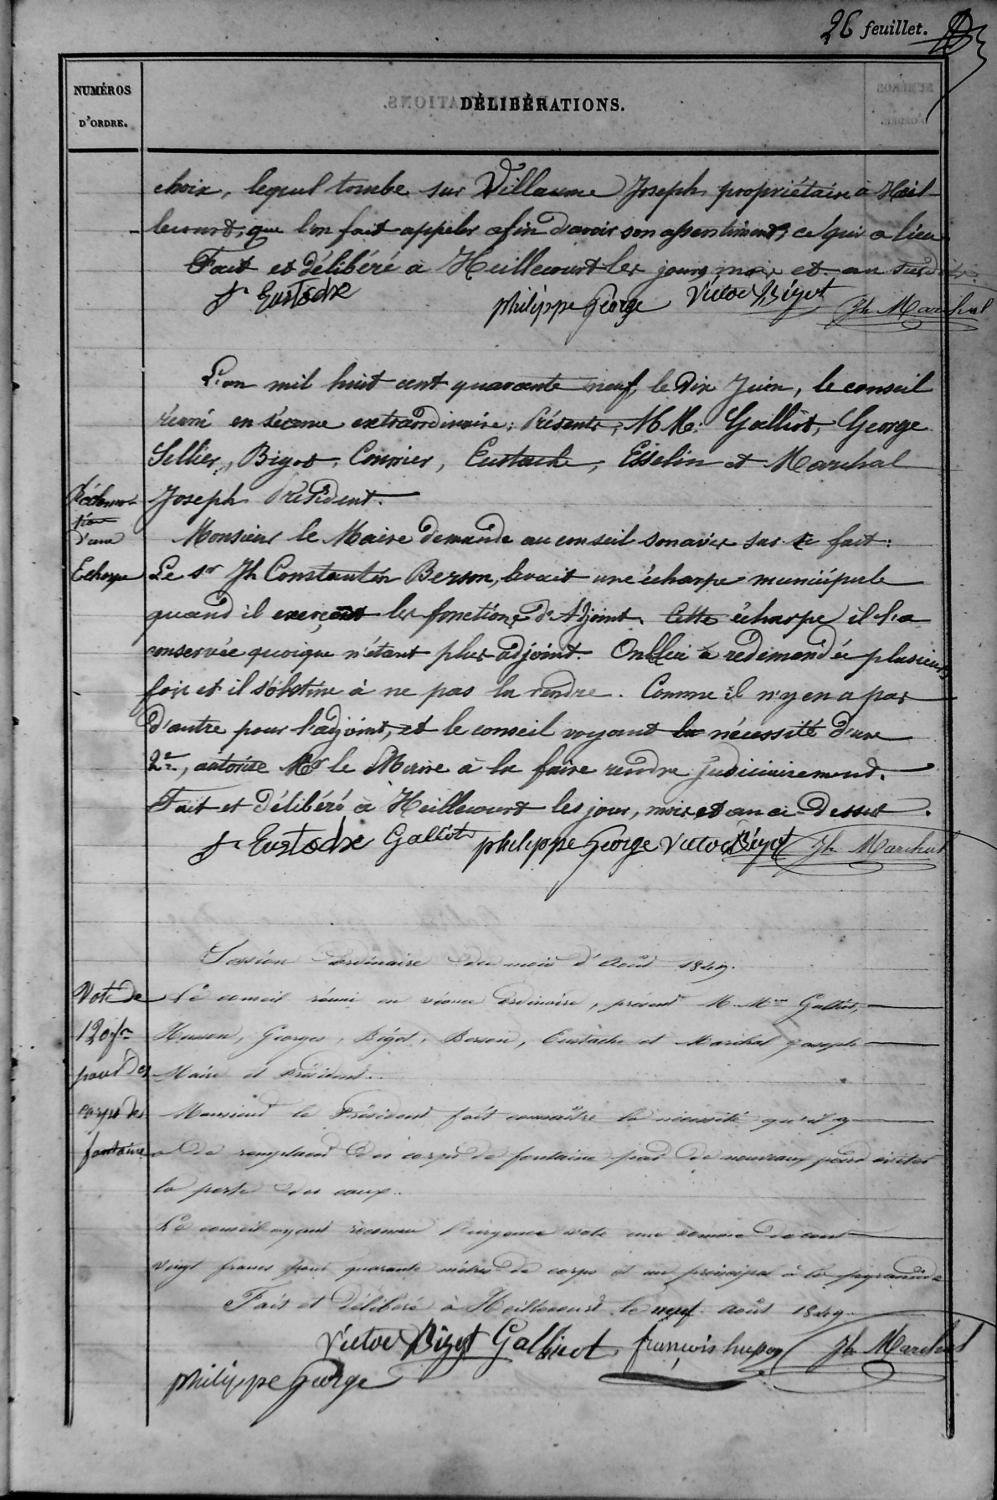 26 feuillet.
NUMÉROS
D'ORDRE.
DÉLIBÉRATIONS.
choix, lequel tombe sur Villaume Joseph, propriétaire à Heil-
lecourt, que l'on fait appeler afin d'avoir son assentiment, ce qui a lieu.
Fait et délibéré à Heillecourt les jours, mois et an susdits.
J. Eustache
philippe George
Victor Bigot
Jh Marchal
L'an mil huit cent quarante neuf, le dix Juin, le conseil
réuni en séance extraordinaire; Présents, MM. Galliot, George
Sellier, Bigot, Cosmier, Eustache, Esselin et Marchal
Joseph Président.
Réclama-
tion
d'une
Echarpe
Monsieur le Maire demande au conseil son avis sur ce fait:
Le sr Jh Constantin Berson, levait une écharpe municipale
quand il exerçait les fonctions d'Adjoint. Cette écharpe, il l'a
conservée quoique n'étant plus adjoint. On la lui a redemandée plusieurs
fois et il s'obstine à ne pas la rendre. Comme il n'y en a pas
d'autre pour l'adjoint, et le conseil voyant la nécessité d'une
2me, autorise Mr le Maire à la faire rendre judiciairement.
Fait et délibéré à Heillecourt les jour, mois et an ci-dessus.
J. Eustache Galliot philippe George Victor Bigot Jh Marchal
Session ordinaire du mois d'Août 1849.
Vote de
120 fr
pour des
corps de
fontaine
Le conseil réuni en séance ordinaire, présent M. Mrs Galliot,
Husson, Georges, Bigot, Berson, Eustache et Marchal Joseph
Maire et Président.
Monsieur le Président fait connaître la nécessité qu'il y
a de remplacer des corps de fontaine par de nouveaux pour éviter
la perte des eaux.
Le conseil ayant reconnu l'urgence vote une somme de cent
vingt francs pour quarante mètres de corps et un principal à la
Fait et délibéré à Heillecourt le neuf Août 1849.
Victor Bigot Galliot françois husson Jh Marchal
philippe George